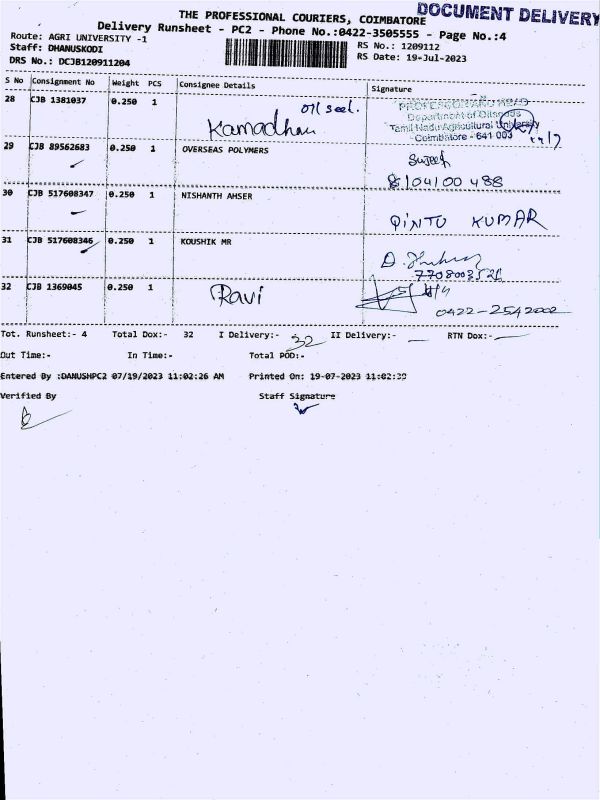 DOCUMENT DELIVERY
THE PROFESSIONAL COURIERS, COIMBATORE
Delivery Runsheet - PC2 - Phone No.:0422-3505555 - Page No.:4
Route: AGRI UNIVERSITY -1
RS No.: 1209112
Staff: DHANUSKODI
RS Date: 19-Jul-2023
DRS No.: DCJB120911204
S No Consignment No Weight PCS Consignee Details Signature
28 CJB 1381037 0.250 1 Kamadhan oil seel.
PROFESSOR AND HEAD
Department of Oilseeds
Tamil Nadu Agricultural University
Coimbatore - 641 003
29 CJB 89562683 0.250 1 OVERSEAS POLYMERS
30 CJB 517608347 0.250 1 NISHANTH AHSER PINTU KUMAR
31 CJB 517608346 0.250 1 KOUSHIK MR
32 CJB 1369045 0.250 1 Ravi
0422-2542002
Tot. Runsheet:- 4 Total Dox:- 32 I Delivery:- 32 II Delivery:- RTN Dox:-
Out Time:- In Time:- Total POD:-
Entered By :DANUSHPC2 07/19/2023 11:02:26 AM Printed On: 19-07-2023 11:02:39
Verified By Staff Signature